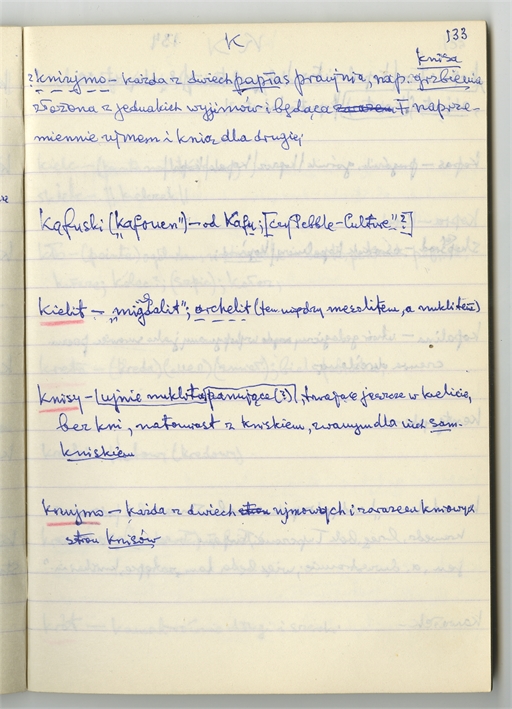 K
133
knisa
knizymo – każda z dwiech papłas pracyjnia, nap. grzbienia
złożona z jednakich wyjimów i będąca zarazem T, naprze-
miennie ujmem i knią dla drugiej
Kąfuski („Kafouen") – od Kafu; [czy Pebble-Culture"?]
Kielit – „migdalit"; archelit (ten między mezolitem, a nuklitem)
Knisy – (ujnie nuklita panujące(?)), trwające jeszcze w kielicie,
bez kni, natomiast z kniskiem, zwanym dla nich sam-
kniskiem
Knujmo – każda z dwiech stron ujmowych i zarazem kniowych
stron knisów